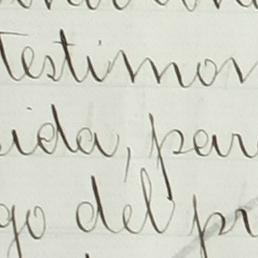 testimon
ida, par
go del pr